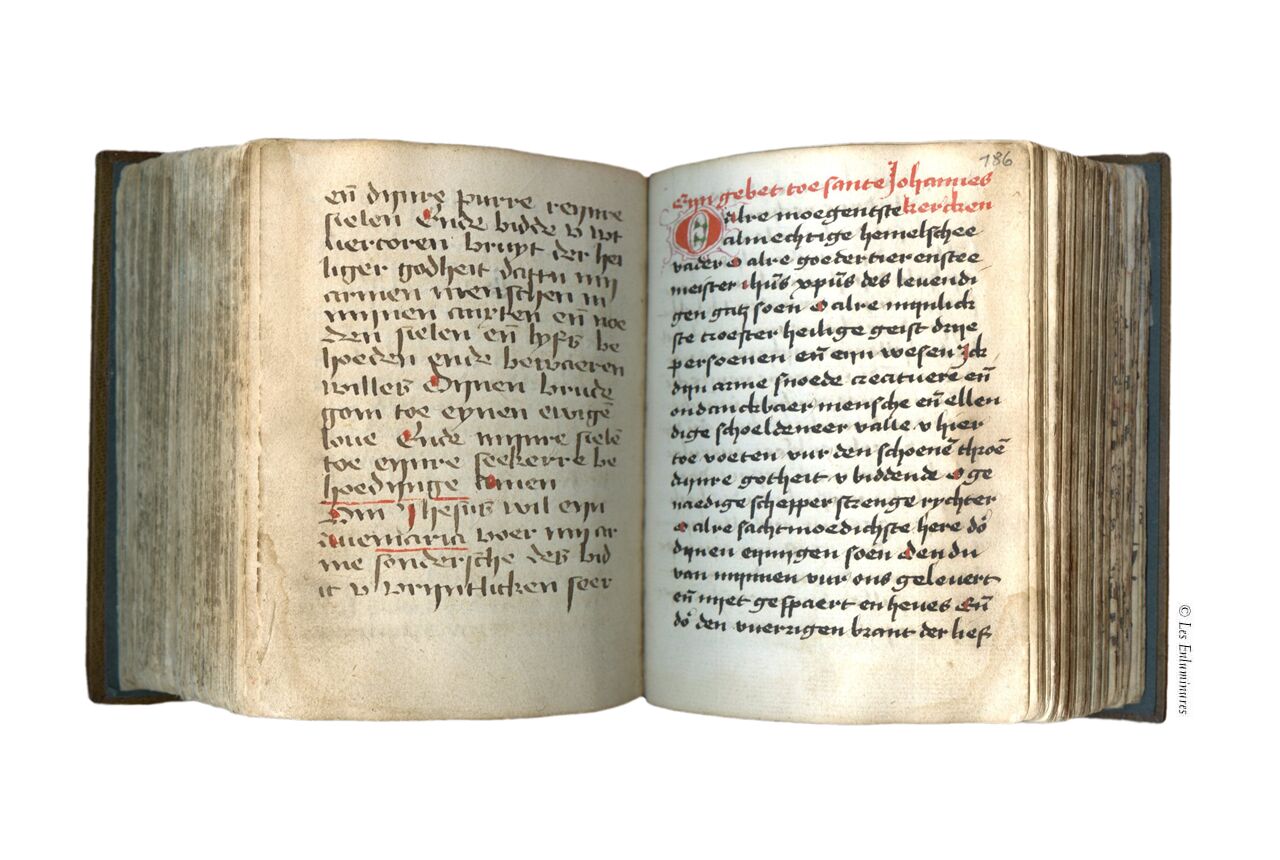 en̄ dijnre purre reijnre
sielen Ende bidde v vvt
vercoren bruyt der hei
liger godheit dattu mij
armen menschen in
mijnen aursten en̄ noe
den sielen en̄ lyfs be
hoeden ende bewaeren
willes Dijnen brude
gom toe eynen ewigē
loue Ende mijnre sielē
toe eijnre seekerre be
hoedijnge Amen
Om Ihesus wil eijn
Aue maria voer mij ar
me sondersche des bid
ic v vrijntlicken seer
186
Eyn gebet toe sante Johannies
kercken
O alre moegentste
almechtige hemelschee
vader O alre goedertierenstee
meister ihūs xpūs des leuendi
gen gatz soen O alre mijnlick
ste troester heilige geist drije
persoenen en̄ eijn wesen Ick
dijn arme snoede creatuere en̄
ondanckbaer mensche en̄ ellen
dige schoeldeneer valle v hier
toe voeten vur den schoenē throē
dijnre gotheit v biddende O ge
naedige schepper strenge rychter
O alre sachtmoedichste here do̅
dijnen eijnijgen soen Den du
van mijnnen vur ons geleuert
en̄ nijet gespaert en heues En̄
do̅ den vuerrigen brant der lief
© Les Enluminures